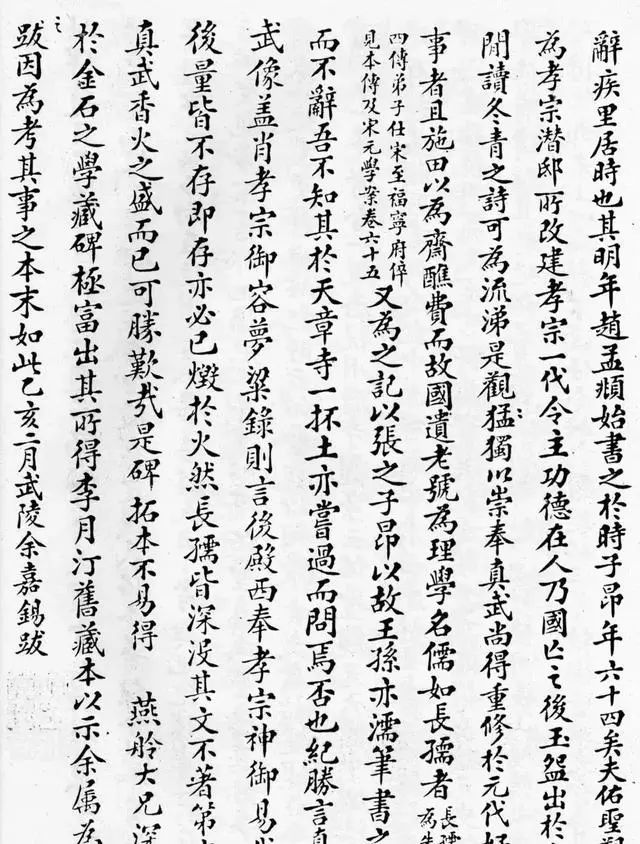 辭疾里居時也其明年趙孟頫始書之於時子昂年六十四矣夫佑聖觀
為孝宗潛邸所改建孝宗一代令主功德在人乃國亡之後玉盌出於
閒讀冬青之詩可為流涕是觀猛獨以崇奉真武尚得重修於元代好
事者且施田以為齋醮費而故國遺老號為理學名儒如長孺者長孺為朱
四傳弟子仕宋至福寧府倅見本傳及宋元學案卷六十五又為之記以張之子昂以故王孫亦濡筆書之
而不辭吾不知其於天章寺一抔土亦嘗過而問焉否也紀勝言真
武像蓋肖孝宗御容夢粱錄則言後殿西奉孝宗神御易代
後量皆不存即存亦必已燬於火然長孺皆深沒其文不著第
真武香火之盛而已可勝歎哉是碑拓本不易得 燕舲大兄深
於金石之學藏碑極富出其所得李月汀舊藏本以示余屬為
之跋因為考其事之本末如此乙亥二月武陵余嘉錫跋